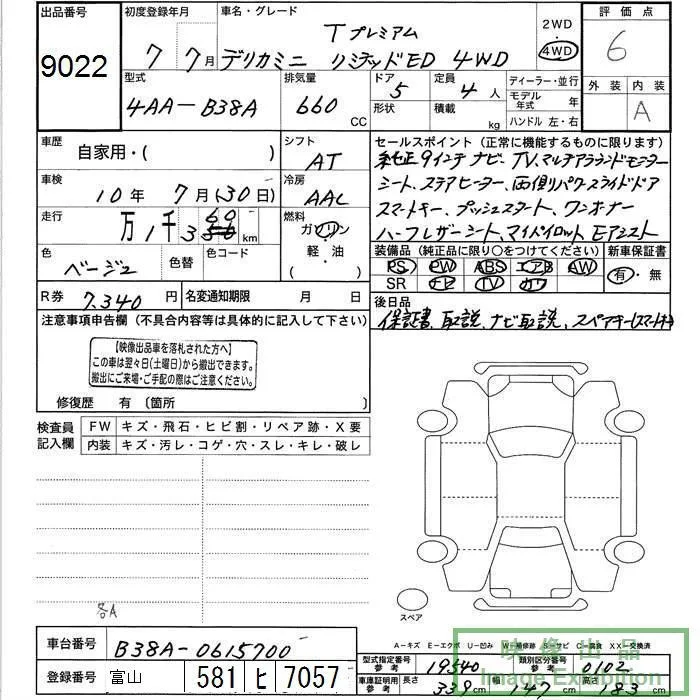 出品番号 初度登録年月 車名・グレード 2WD 評価点
9022 7 7月 Tプレミアム
デリカミニ リミテッドED 4WD 4WD 6
型式 排気量 ドア 定員 ディーラー・並行 外装 内装
4AA-B38A 660 CC 5 4人 モデル年式 年
形状 積載 kg ハンドル 左・右 A
車歴 自家用・( ) シフト AT
セールスポイント (正常に機能するものに限ります)
純正9インチナビ、TV、マルチアラウンドモニター
車検 10年 7月(30日) 冷房 AAC
シート、ステアヒーター、両側パワースライドドア
スマートキー、プッシュスタート、ワンオーナー
走行 万 1千3 km 燃料 ガソリン
軽・油
( )
ハーフレザーシート、マイパイロット、Eアシスト
色 ベージュ 色替 色コード
装備品 (純正品に限り〇をつけてください) 新車保証書
PS PW ABS エアB AW 有・無
SR ナビ TV カワ
R券 7,340 円 名変通知期限 月 日
後日品
保証書、取説、ナビ取説、スペアキー(スマートキー)
注意事項申告欄 (不具合内容等は具体的に記入して下さい)
【映像出品車を落札された方へ】
この車は翌々日(土曜日)から搬出できます。
搬出にご来場・ご手配の際はご注意ください。
修復歴 有 〔箇所 〕
検査員記入欄 FW キズ・飛石・ヒビ割・リペア跡・X要
内装 キズ・汚レ・コゲ・穴・スレ・キレ・破レ
スペア
A-キズ E-エクボ U-凹み W-補修跡 S-サビ C-腐食 XX-交換済
車台番号 B38A-0615700
登録番号 富山 581 ヒ 7057
型式指定番号 参考 19540 類別区分番号 参考 0102
車庫証明用 参考 長さ 339 cm 幅 147 cm 高さ 183 cm
映像出品
Image Exhibition